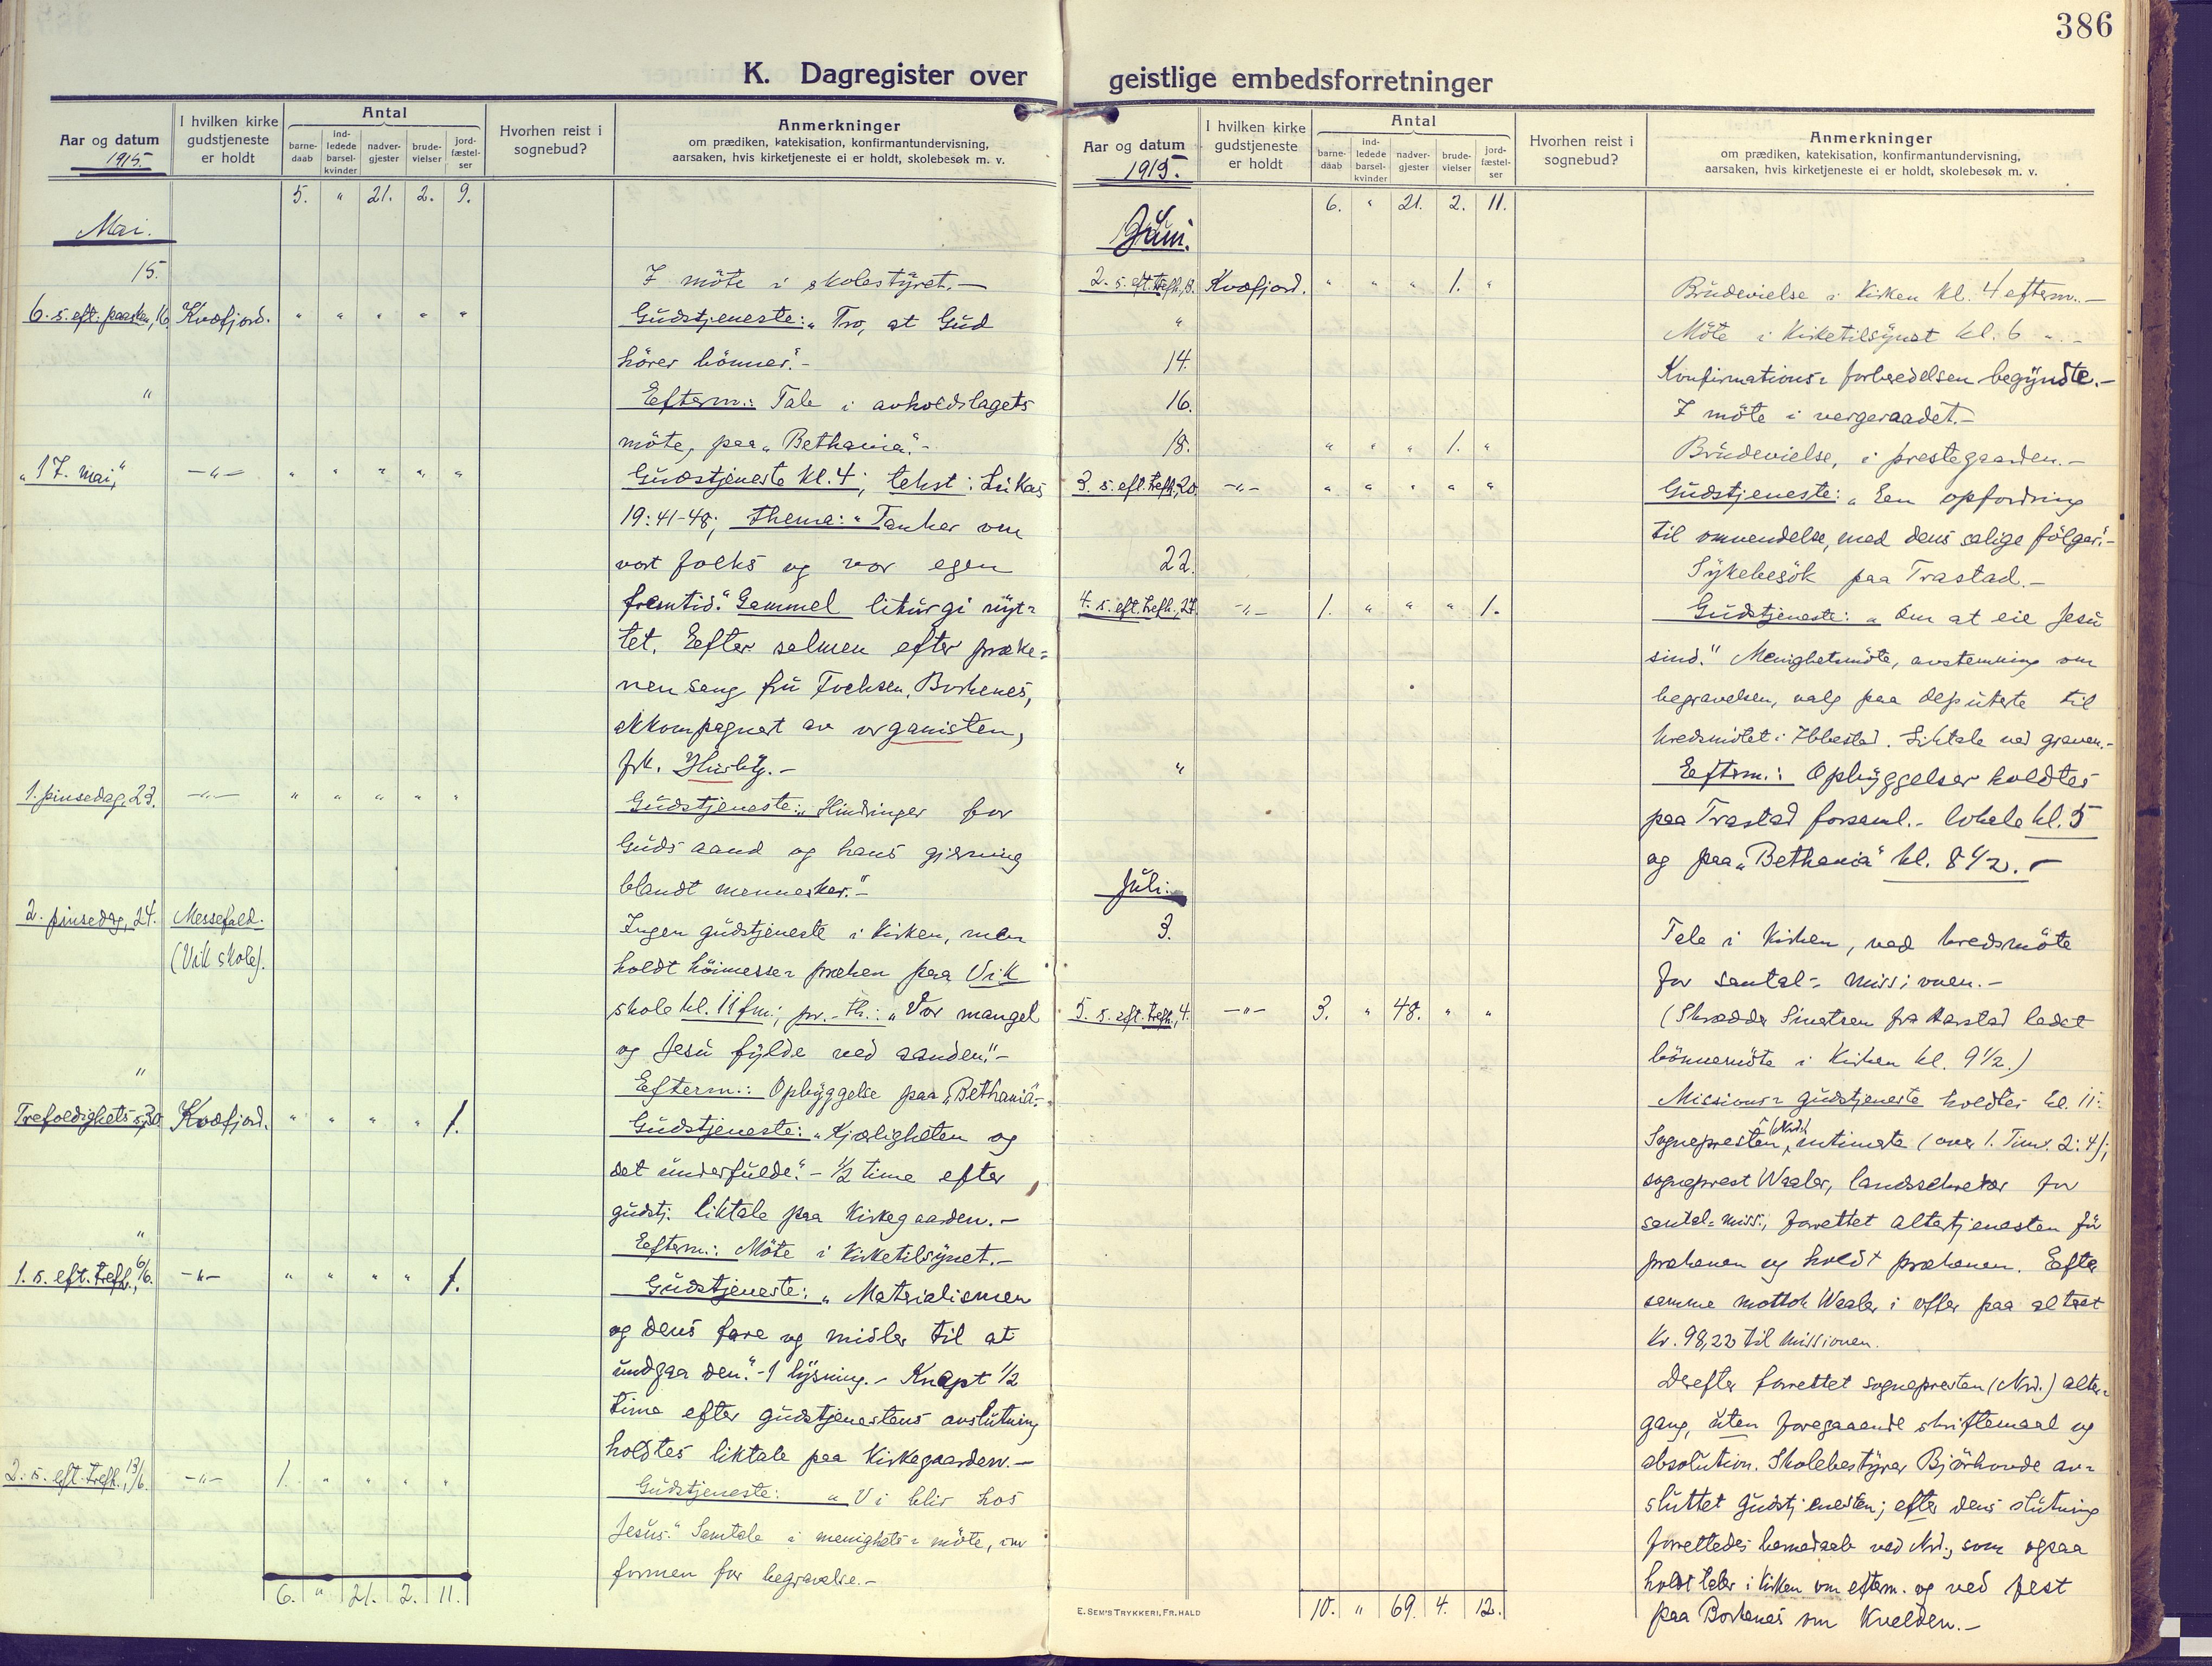 386
K. Dagregister over geistlige embedsforretninger
Aar og datum
1915.
I hvilken kirke
gudstjeneste
er holdt
Antal
barne-
daab
ind-
ledede
barsel-
kvinder
nadver-
gjester
brude-
vielser
jord-
fæstel-
ser
Hvorhen reist i
sognebud?
Anmerkninger
om prædiken, katekisation, konfirmantundervisning,
aarsaken, hvis kirketjeneste ei er holdt, skolebesøk m. v.
5. " 21. 2. 9.
Mai.
15. I möte i skolestyret. —
6. s. eft. paasken, 16 Kvæfjord. " " " " " Gudstjeneste: „Tro, at Gud
hörer bönner". -
" Efterm.: Tale i avholdslagets
möte, paa „Bethania". -
„17. mai," —"— " " " " " Gudstjeneste kl. 4; tekst: Lukas
19:41-48; thema: „Tanker om
vort folks og vor egen
fremtid." Gammel liturgi nyt=
tet. Eefter salmen efter præke=
nen sang fru Fochsen, Borkenes,
akkompagnert av organisten,
frk. Husby. —
1. pinsedag, 23. —"— " " " " " Gudstjeneste: „Hindringer for
Guds aand og hans gjerning
blandt mennesker." -
2. pinsedag, 24. Messefald. Ingen gudstjeneste i kirken, men
(Vik skole). holdt höimesse= præken paa Vik
skole kl. 11 fm.; pr.-th.: „Vor mangel
og Jesu fylde ved aanden". -
" Efterm.: Opbyggelse paa „Bethania". -
Trefoldighets s, 30 Kvæfjord. " " " " 1. Gudstjeneste: „Kjærligheten og
det underfulde". - 1/2 time efter
gudstj. liktale paa kirkegaarden. —
" Eefterm.: Möte i kirketilsynet. —
1. s. eft. trefh., 6/6. —"— " " " " 1. Gudstjeneste: „Materialismen
og dens fare og midler til at
undgaa den". - 1 lysning. - Knapt 1/2
time efter gudstjenestens avslutning
holdtes liktale paa kirkegaarden. —
2. s. eft. trefh., 13/6. —"— 1. " " " " Gudstjeneste: „Vi blir hos
Jesus." Samtale i menighets= möte, om
formen for begravelse. —
6. " 21. 2. 11.
Aar og datum
1915.
I hvilken kirke
gudstjeneste
er holdt
Antal
barne-
daab
ind-
ledede
barsel-
kvinder
nadver-
gjester
brude-
vielser
jord-
fæstel-
ser
Hvorhen reist i
sognebud?
Anmerkninger
om prædiken, katekisation, konfirmantundervisning,
aarsaken, hvis kirketjeneste ei er holdt, skolebesøk m. v.
6. " 21. 2. 11.
Juni.
2. s. eft. trefh., 13. Kvæfjord. " " " 1. " Brudevielse i kirken kl. 4 efterm. —
" Möte i kirketilsynet kl. 6 " -
14. Konfirmations= forberedelsen begyndte. -
16. I möte i vergeraadet. -
18. " " " 1. " Brudevielse, i prestegaarden. -
3. s. eft. trefh., 20. —"— " " " " " Gudstjeneste: „Een opfordring
til omvendelse, med dens salige fölger". -
22. Sykebesök paa Trastad. -
4. s. eft. trefh., 27. —"— 1. " " " 1. Gudstjeneste: „Om at eie Jesu
sind." Menighetsmöte, avstemning om
begravelsen, valg paa deputerte til
kredsmötet i Ibbestad. Liktale ved graven. -
" Eefterm.: Opbyggelser holdtes
paa Trastad forsaml.- lokale kl. 5
og paa „Bethania" kl. 8 1/2. -
Juli.
3. Tale i kirken, ved kredsmöte
for santal= missionen. -
5. s. eft. trefh., 4. —"— 3. " 48. " " (Skrædder Sivertsen fra Harstad ledet
bönnemöte i kirken kl. 9 1/2.)
Missions= gudstjeneste holdtes kl. 11:
Sognepresten (Nrd.) intimerte (over 1. Tim. 2:4);
sogneprest Waaler, landssekretær for
santal= miss., forrettet altertjenesten för
prækenen og holdt prækenen. Efter
samme mottok Waaler i offer paa alteret
kr. 98,22 til missionen.
Derefter forrettet sognepresten (Nrd.) alter=
gang, uten foregaaende skriftemaal og
absolution. Skolebestyrer Björhovde av=
sluttet gudstjenesten; efter dens slutning
forrettedes barnedaab ved Nrd., som ogsaa
holdt taler i kirken om efterm. og ved fest
paa Borkenes om kvelden. —
10. " 69. 4. 12.
E. SEM'S TRYKKERI, FR.HALD